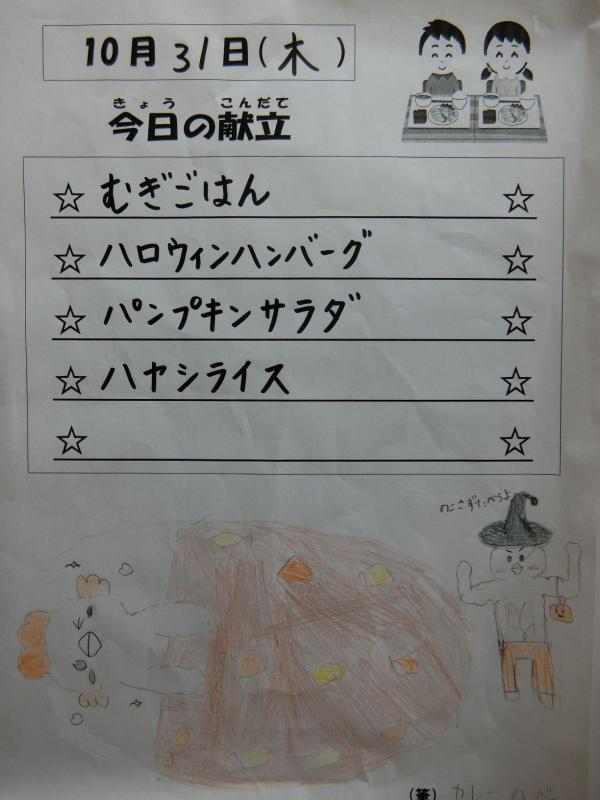 10月31日(木)
きょう こんだて
今日の献立
☆ むぎごはん ☆
☆ ハロウィンハンバーグ ☆
☆ パンプキンサラダ ☆
☆ ハヤシライス ☆
☆ ☆
のこさずたべろよ
(筆)